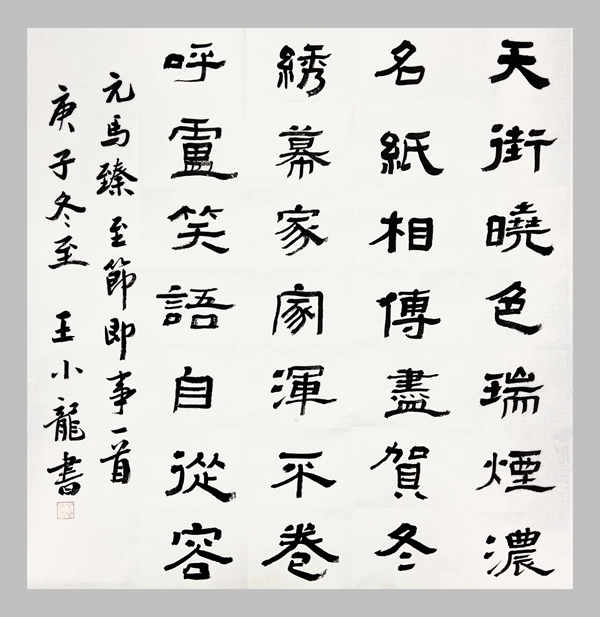 天街曉色瑞煙濃
名紙相傳盡賀冬
綉幕家家渾不卷
呼盧笑語自從容
元馬臻至節即事一首
庚子冬至 王小龍書